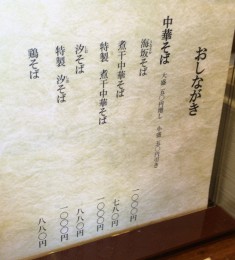 おしながき
中華そば
大盛 五〇円増し 小盛 五〇円引き
海坂そば 一〇〇〇円
煮干中華そば 七八〇円
特製 煮干中華そば 一〇〇〇円
汐そば 八八〇円
特製 汐そば 一〇〇〇円
鶏そば 八八〇円